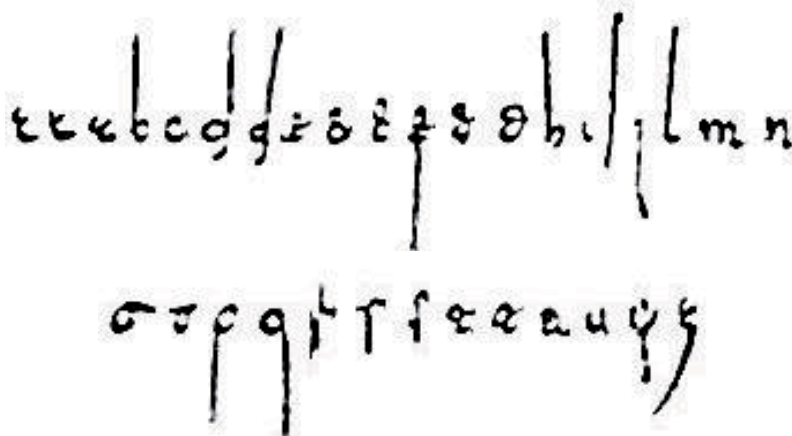 a a a b c d d e e e f g g h i i j l m n
o o p q r ſ ſ t t t u y z